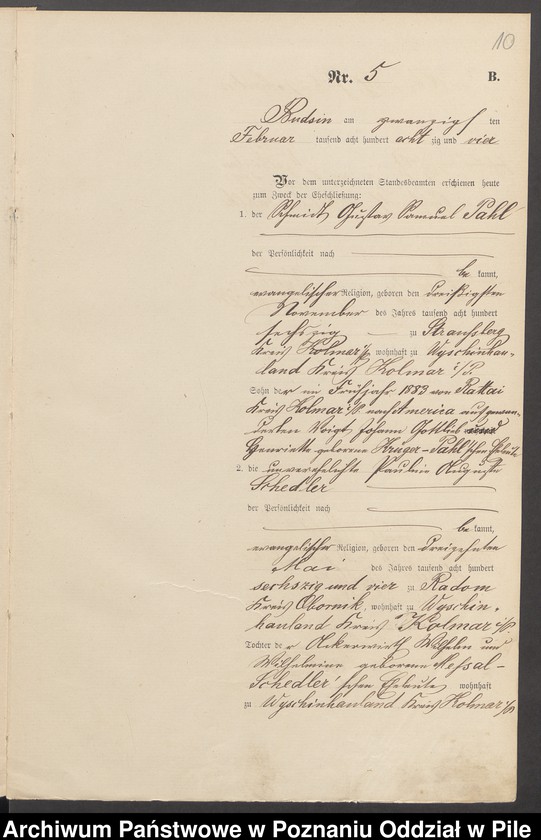 10
Nr. 5 B.
Budsin am zwanzigsten
Februar tausend acht hundert achtzig und vier
Vor dem unterzeichneten Standesbeamten erschienen heute
zum Zweck der Eheschließung:
1. der Schmidt Gustav Samuel Pahl
der Persönlichkeit nach
be kannt,
evangelischer Religion, geboren den dreißigsten
November des Jahres tausend acht hundert
sechszig zu Straußberg
Kreis Kolmar i/P. wohnhaft zu Wyschinhau-
land Kreis Kolmar i/P.
Sohn der im Frühjahr 1883 von Rattai
Kreis Kolmar i/P. nach America ausgewan-
derten Voigt Johann Gottlieb und
Henriette geborene Krüger-Pahl'schen Eheleute
2. die unverehelichte Pauline Auguste
Schedler
der Persönlichkeit nach
be kannt,
evangelischer Religion, geboren den dreizehnten
Mai des Jahres tausend acht hundert
sechszig und vier zu Radom
Kreis Obornik, wohnhaft zu Wyschin-
hauland Kreis Kolmar i/P
Tochter der Ackerwirth Wilhelm und
Wilhelmine geborene Messal-
Schedler'schen Eheleute wohnhaft
zu Wyschinhauland Kreis Kolmar i/P
Archiwum Państwowe w Poznaniu Oddział w Pile